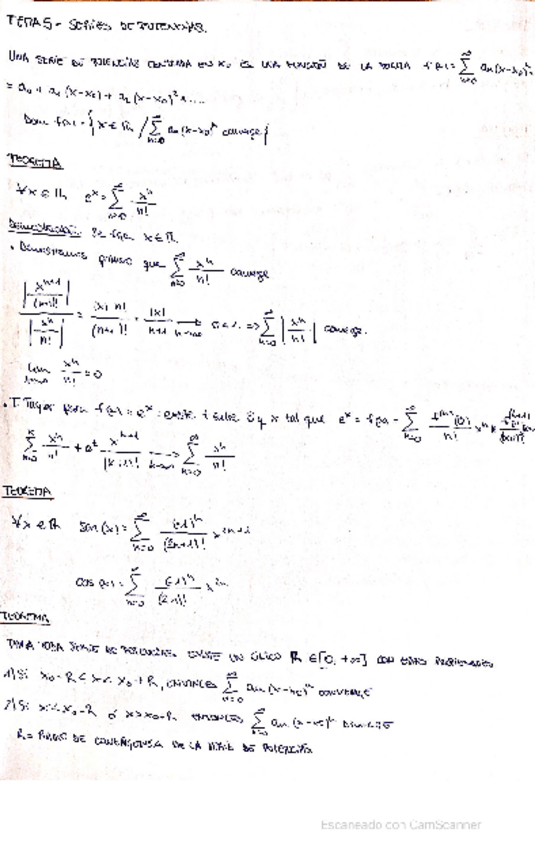 TEMA 5 - SERIES DE POTENCIAS.
UNA SERIE DE POTENCIAS CENTRADA EN x₀ ES UNA FUNCIÓN DE LA FORMA f(x) = ∑_{n=0}^{∞} aₙ(x-x₀)ⁿ =
= a₀ + a₁(x-x₀) + a₂(x-x₀)² + ....
Dom f(x) = {x ∈ ℝ / ∑_{n=0}^{∞} aₙ(x-x₀)ⁿ converge}
TEOREMA
∀x ∈ ℝ eˣ = ∑_{n=0}^{∞} xⁿ/n!
Demostración: Se fija x ∈ ℝ.
• Demostramos primero que ∑_{n=0}^{∞} xⁿ/n! converge
|x^{n+1}/(n+1)!| / |xⁿ/n!| = |x| n!/(n+1)! = |x|/(n+1) → n→∞ 0 < 1 ⇒ ∑_{n=0}^{∞} |xⁿ/n!| converge.
lim xⁿ/n! = 0
• T. Taylor para f(x) = eˣ: existe t entre 0 y x tal que eˣ = f(x) = ∑
∑_{n=0}^{k} xⁿ/n! + eᵗ x^{k+1}/(k+1)! → k→∞ ∑_{n=0}^{∞} xⁿ/n!
TEOREMA
∀x ∈ ℝ Sen(x) = ∑_{n=0}^{∞} (-1)ⁿ/(2n+1)! x^{2n+1}
cos(x) = ∑_{n=0}^{∞} (-1)ⁿ/(2n)! x^{2n}
TEOREMA
PARA TODA SERIE DE POTENCIAS EXISTE UN ÚNICO R ∈ [0, +∞] CON ESTAS PROPIEDADES
1) Si x₀-R < x < x₀+R, ENTONCES ∑_{n=0}^{∞} aₙ(x-x₀)ⁿ CONVERGE
2) Si x < x₀-R ó x > x₀-R ENTONCES ∑_{n=0}^{∞} aₙ(x-x₀)ⁿ DIVERGE
R = RADIO DE CONVERGENCIA DE LA SERIE DE POTENCIAS
Escaneado con CamScanner